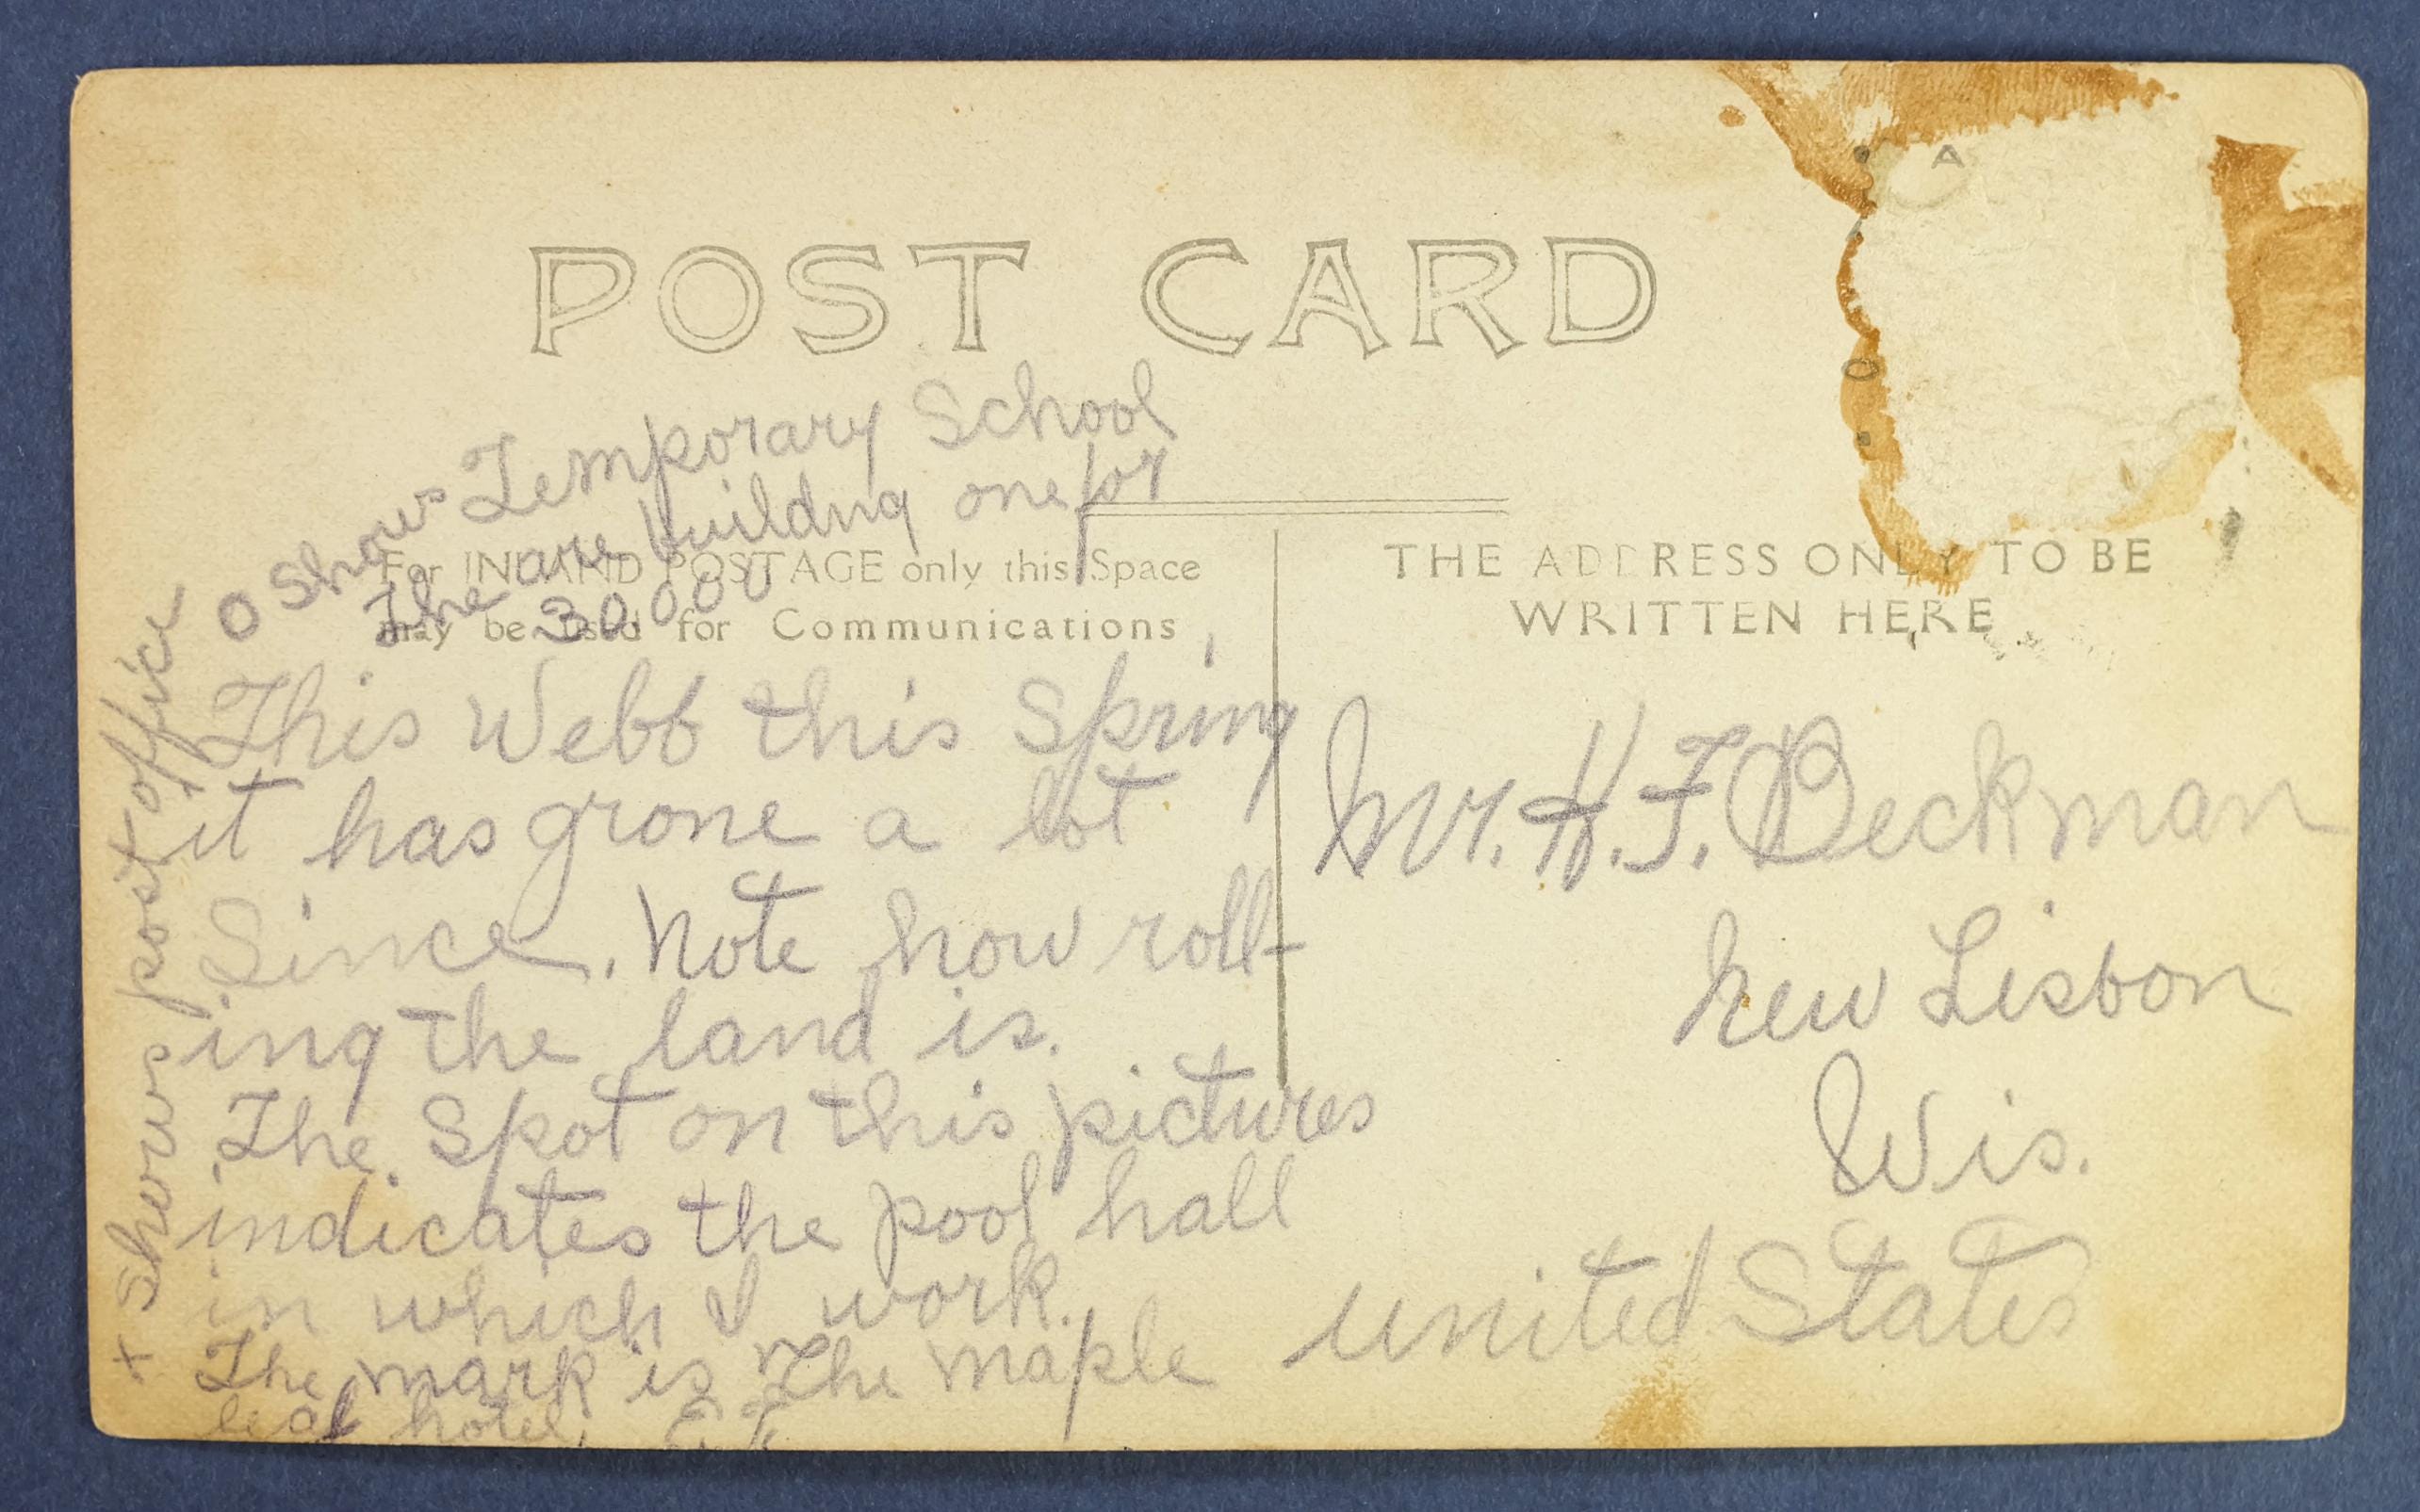 POST CARD
O Shows Temporary School
The are buildng one for
30,000
For INLAND POSTAGE only this Space
may be used for Communications
THE ADDRESS ONLY TO BE
WRITTEN HERE
This Webb this Spring
it has grone a lot
Since. Note how roll-
ing the land is.
The Spot on this pictures
indicates the pool hall
in which I work.
The mark is The maple
leaf hotel.
x Shows post office
Mr. H. F. Beckman
New Lisbon
Wis.
United States